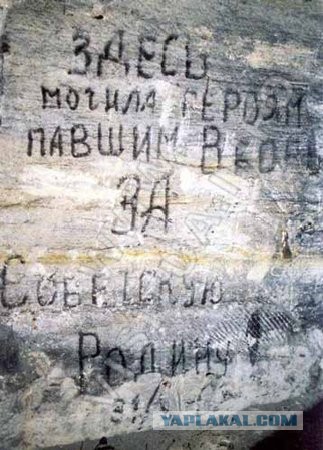 ЗДЕСЬ
МОГИЛА ГЕРОЯМ
ПАВШИМ В БОЯХ
ЗА
СОВЕТСКУЮ
РОДИНУ
YAPLAKAL.COM